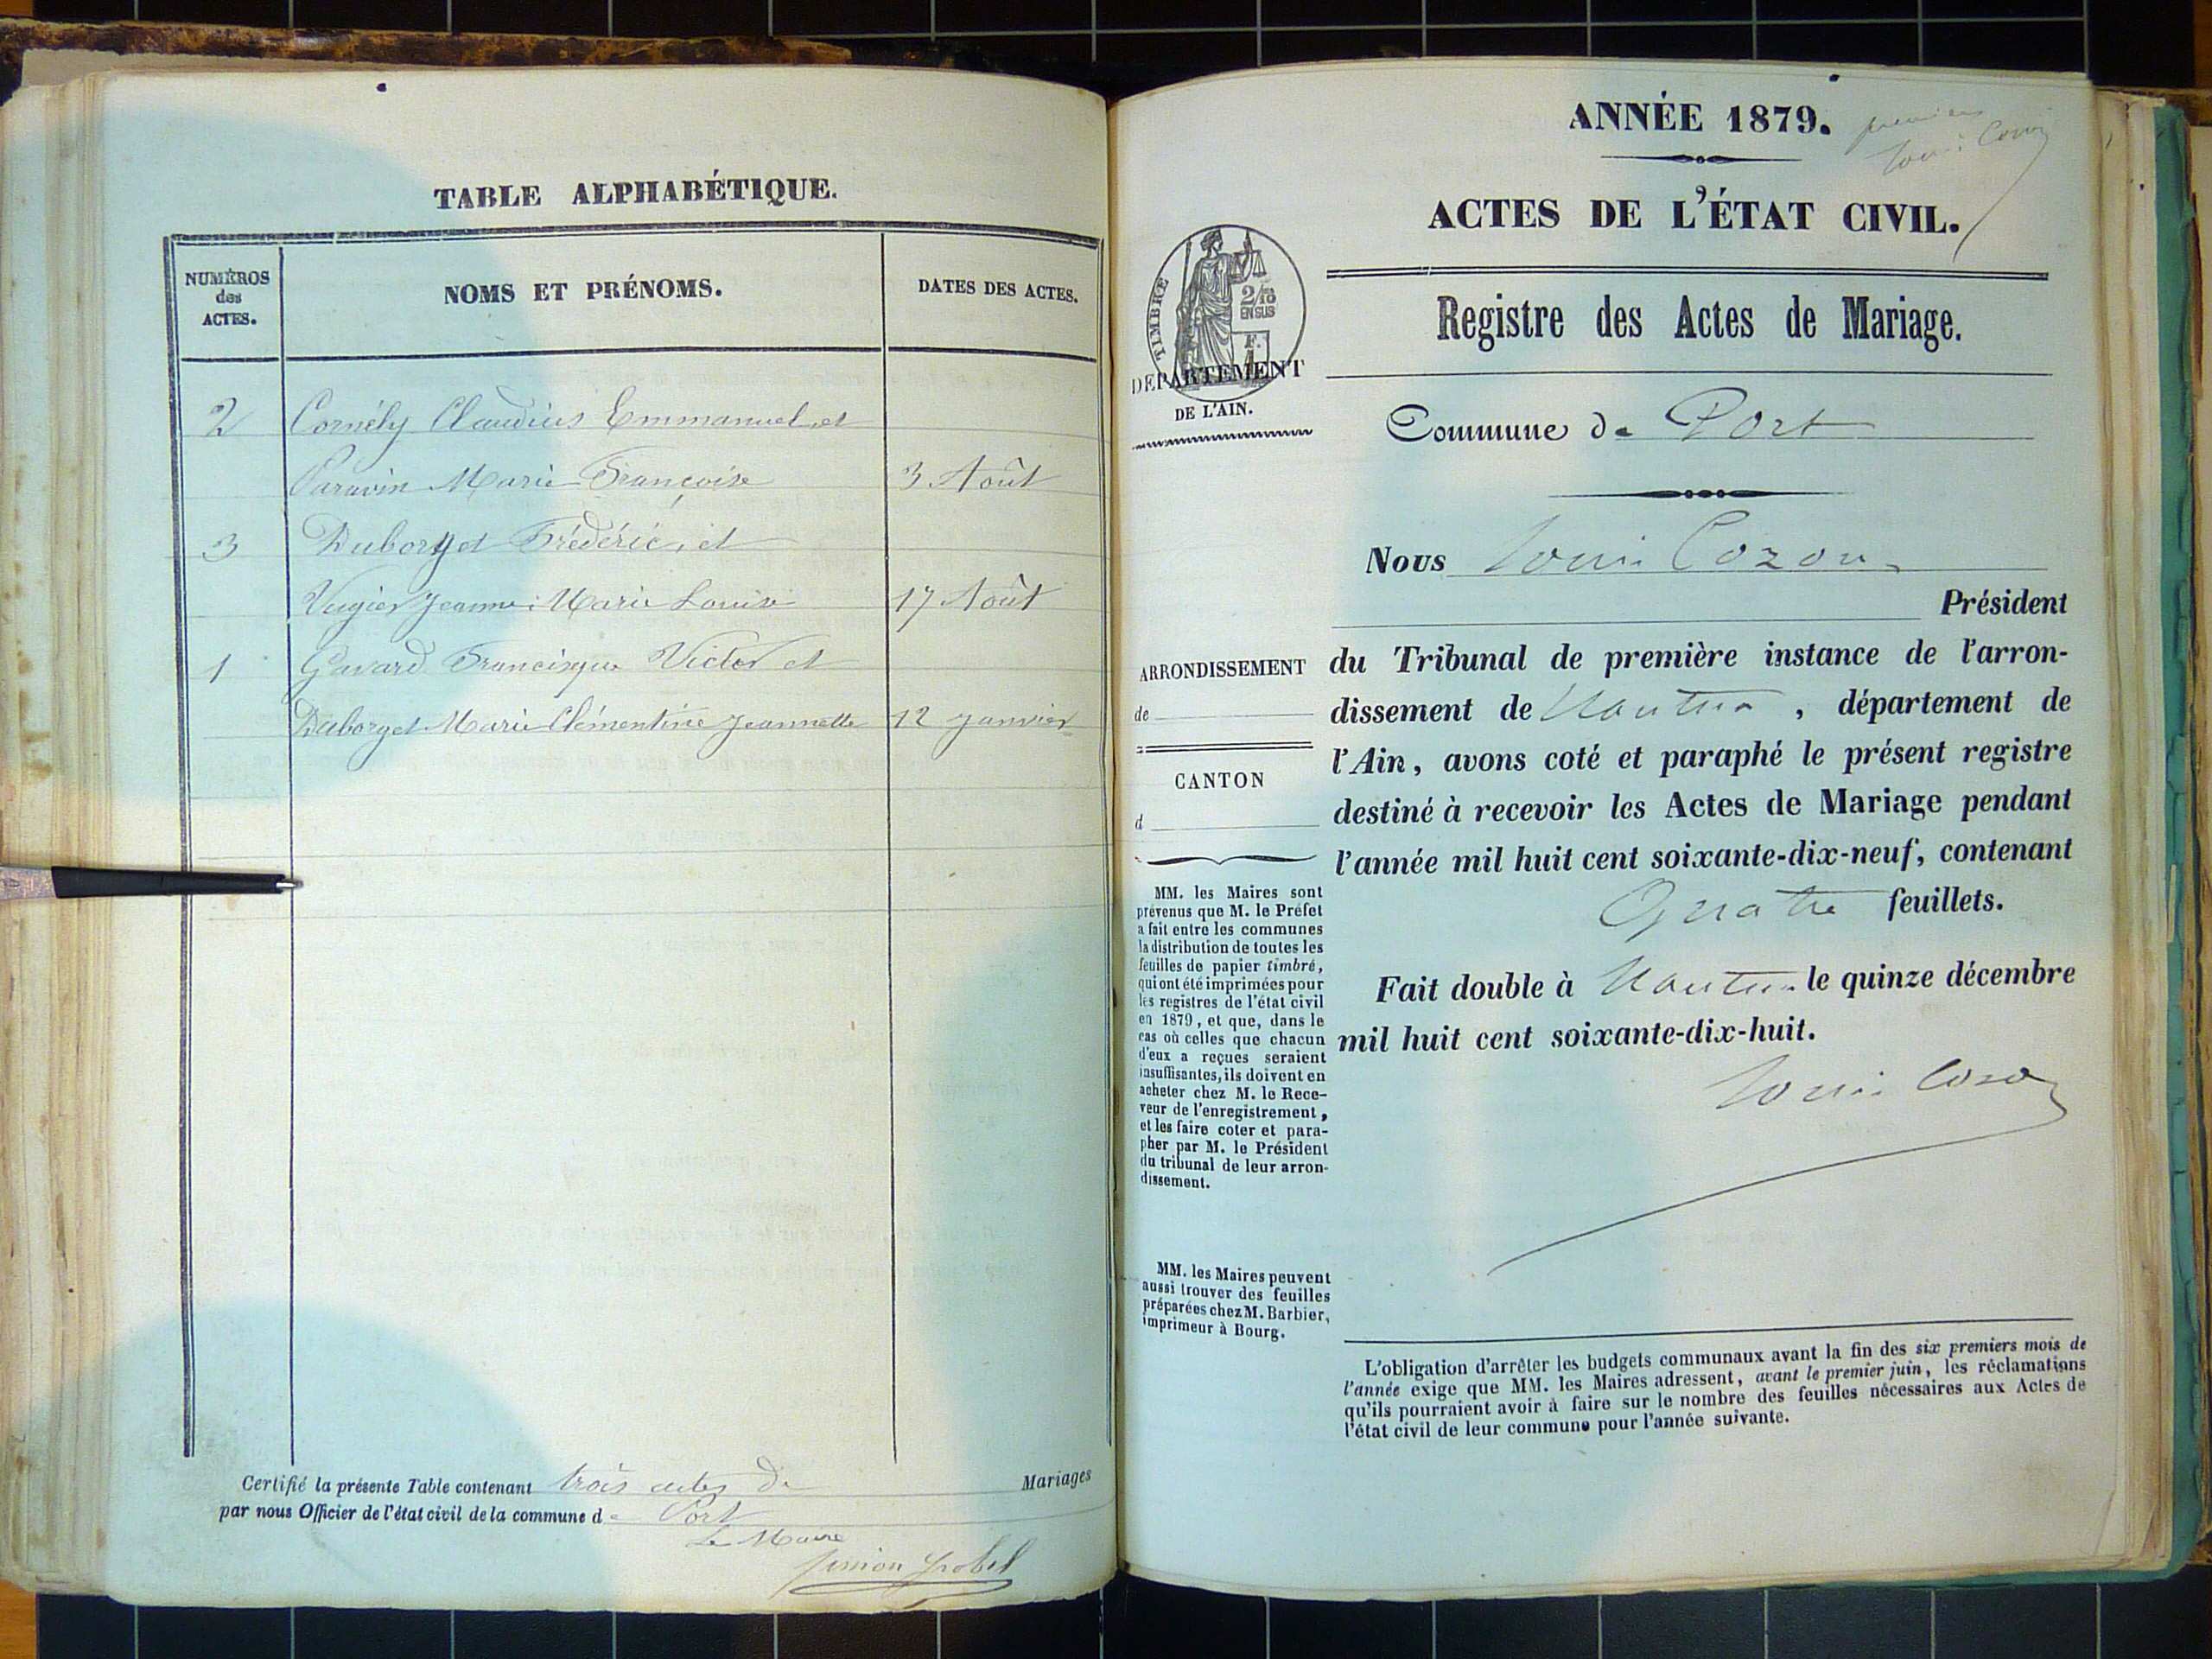 TABLE ALPHABÉTIQUE.
NUMÉROS
des
ACTES.
NOMS ET PRÉNOMS.
DATES DES ACTES.
2 Cornély Claudius Emmanuel, et
Paravin Marie Françoise 3 Août
3 Duborget Frédéric, et
Jeanne Marie Louise 17 Août
1 Gavard Francisque Victor et
Duborget Marie Clémentine Jeannette 12 janvier
Certifié la présente Table contenant trois actes de Mariages
par nous Officier de l'état civil de la commune de Port
Le Maire
ANNÉE 1879.
premier
Louis Cozon
ACTES DE L'ÉTAT CIVIL.
Registre des Actes de Mariage.
TIMBRE
2/10
EN SUS
F.
DÉPARTEMENT
DE L'AIN.
Commune de Port
Nous Louis Cozon
Président
du Tribunal de première instance de l'arron-
dissement de Nantua, département de
l'Ain, avons coté et paraphé le présent registre
destiné à recevoir les Actes de Mariage pendant
l'année mil huit cent soixante-dix-neuf, contenant
Quatre feuillets.
Fait double à Nantua le quinze décembre
mil huit cent soixante-dix-huit.
Louis Cozon
ARRONDISSEMENT
de
CANTON
d
MM. les Maires sont
prévenus que M. le Préfet
a fait entre les communes
la distribution de toutes les
feuilles de papier timbré,
qui ont été imprimées pour
les registres de l'état civil
en 1879, et que, dans le
cas où celles que chacun
d'eux a reçues seraient
insuffisantes, ils doivent en
acheter chez M. le Rece-
veur de l'enregistrement,
et les faire coter et para-
pher par M. le Président
du tribunal de leur arron-
dissement.
MM. les Maires peuvent
aussi trouver des feuilles
préparées chez M. Barbier,
imprimeur à Bourg.
L'obligation d'arrêter les budgets communaux avant la fin des six premiers mois de
l'année exige que MM. les Maires adressent, avant le premier juin, les réclamations
qu'ils pourraient avoir à faire sur le nombre des feuilles nécessaires aux Actes de
l'état civil de leur commune pour l'année suivante.